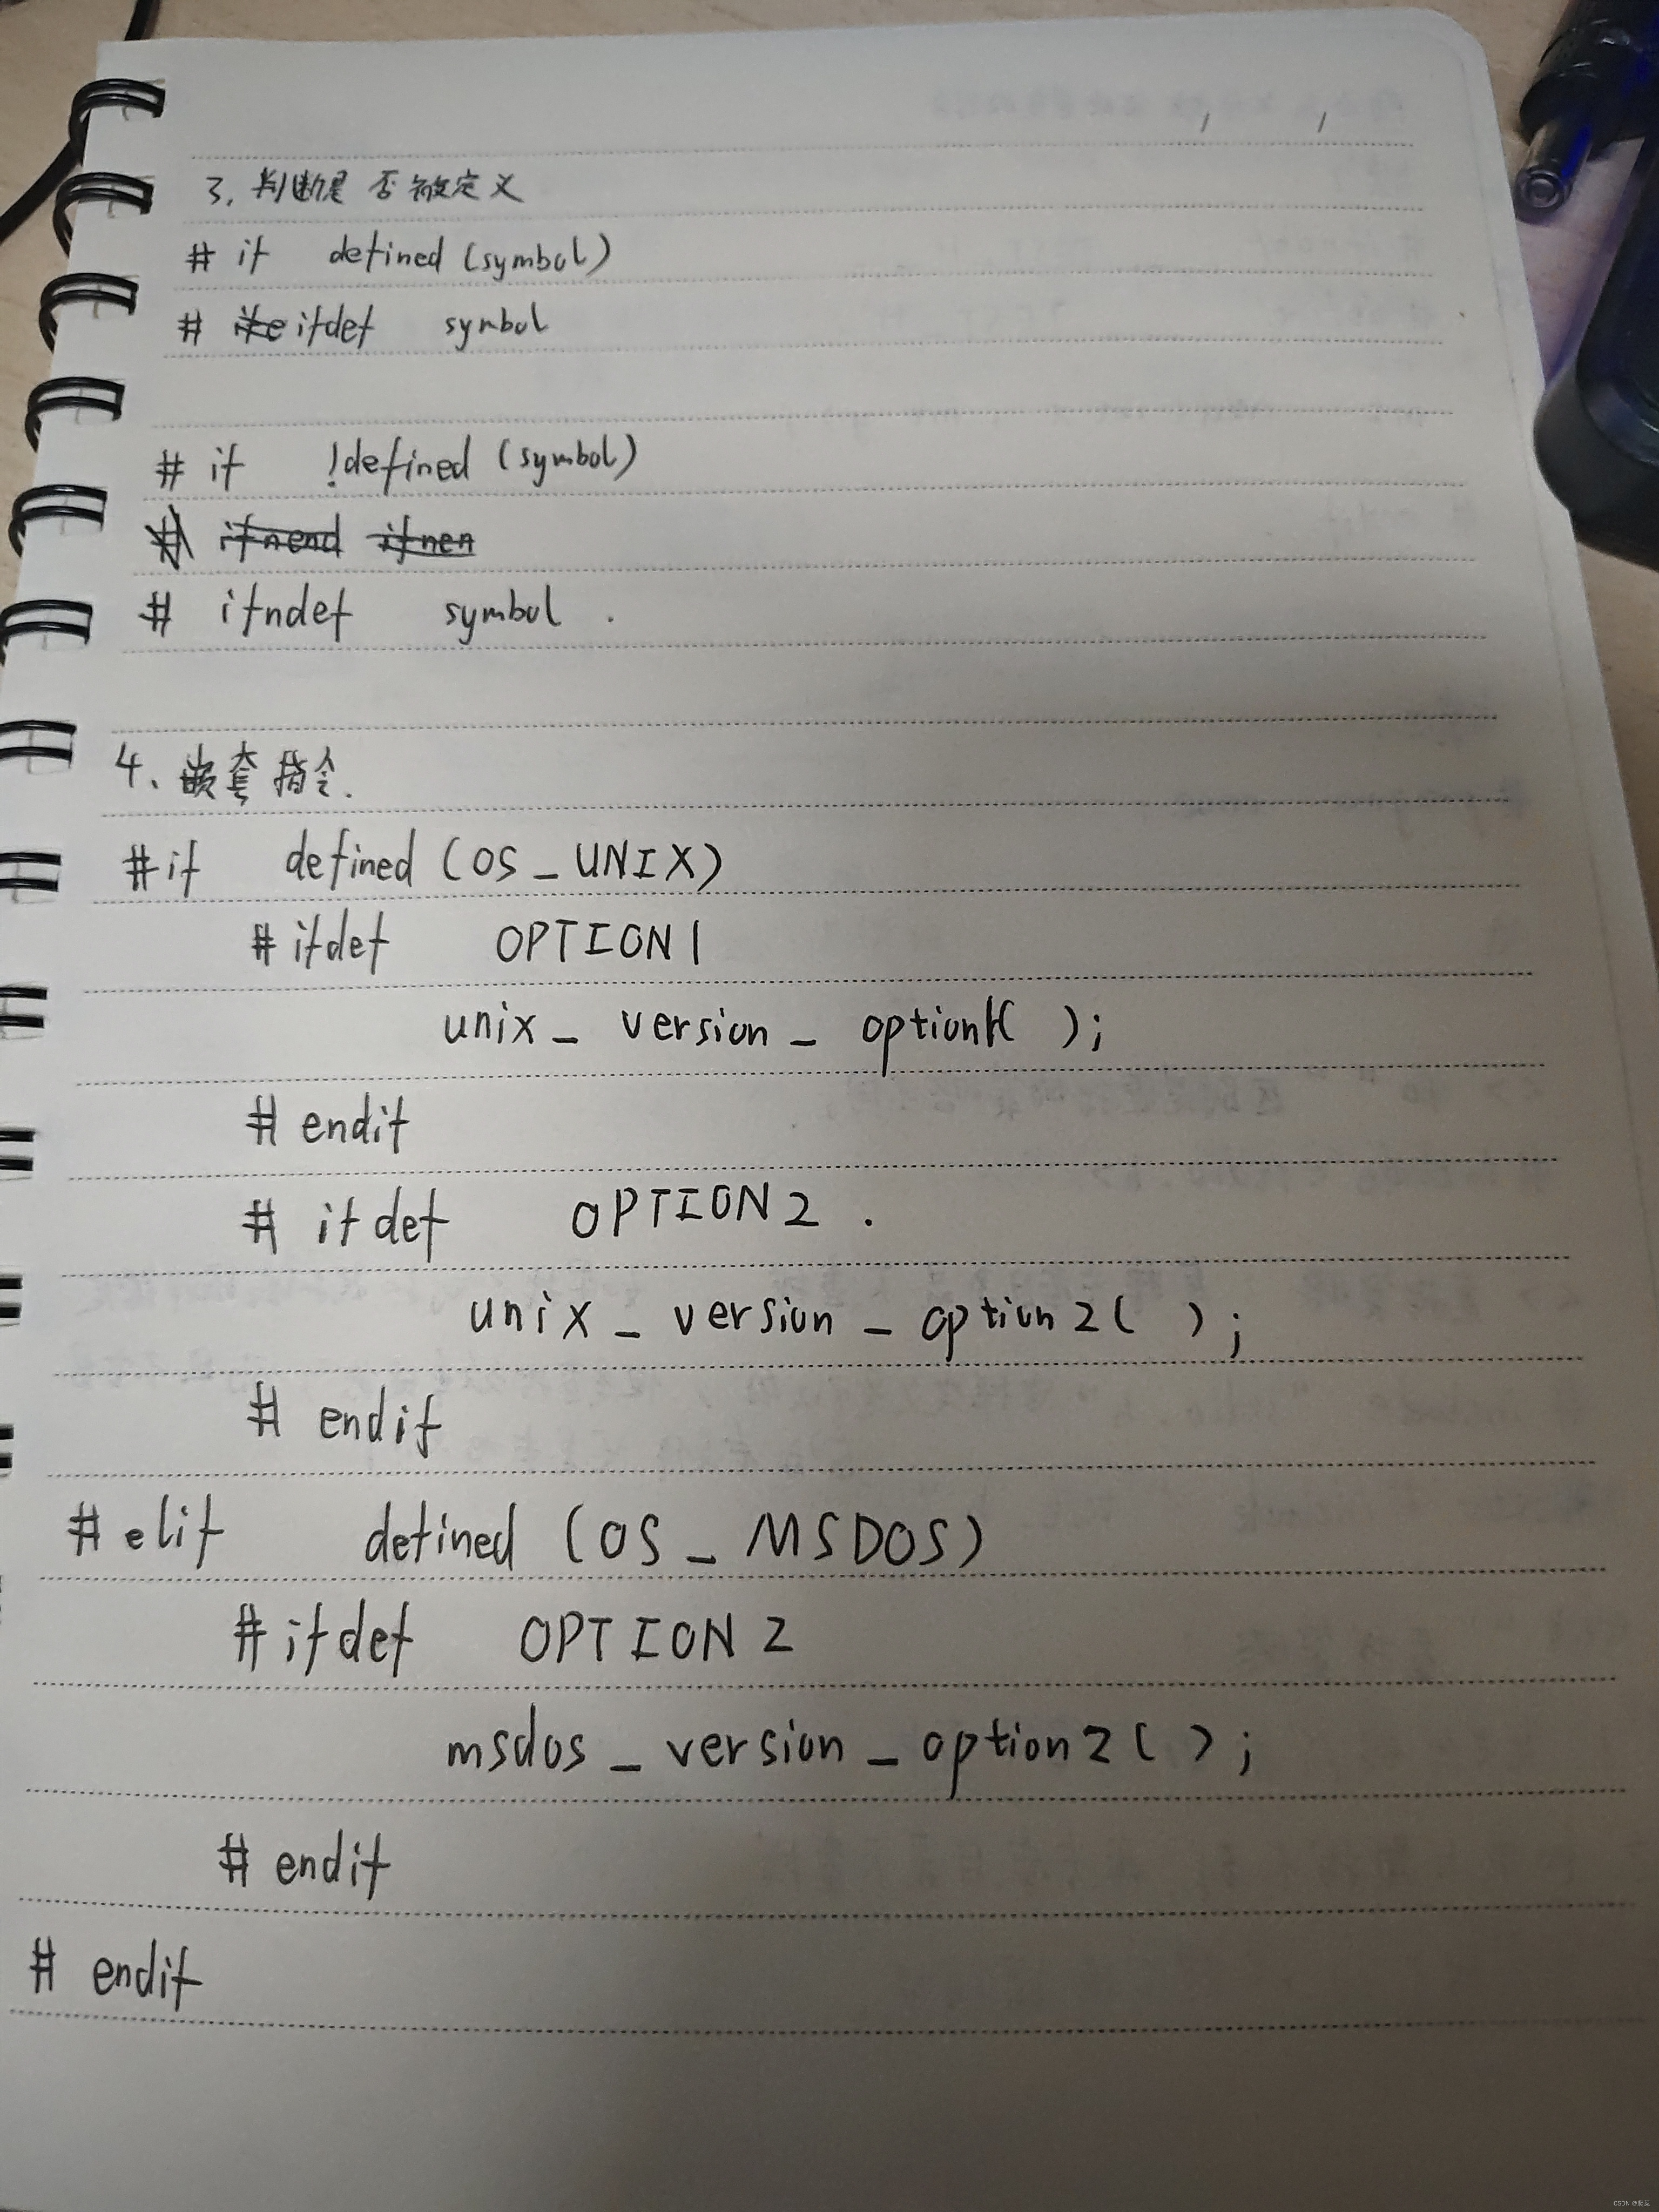 3. 判断是否被定义
# if defined (symbol)
# ifdef symbol
# if !defined (symbol)
# ifndef symbol .
4、嵌套指令.
#if defined (OS_UNIX)
# ifdef OPTION1
unix_ version_ option1( );
# endif
# ifdef OPTION2 .
unix_ version_ option2( );
# endif
# elif defined (OS_MSDOS)
# ifdef OPTION2
msdos_version_option2( );
# endif
# endif
CSDN @爬菜